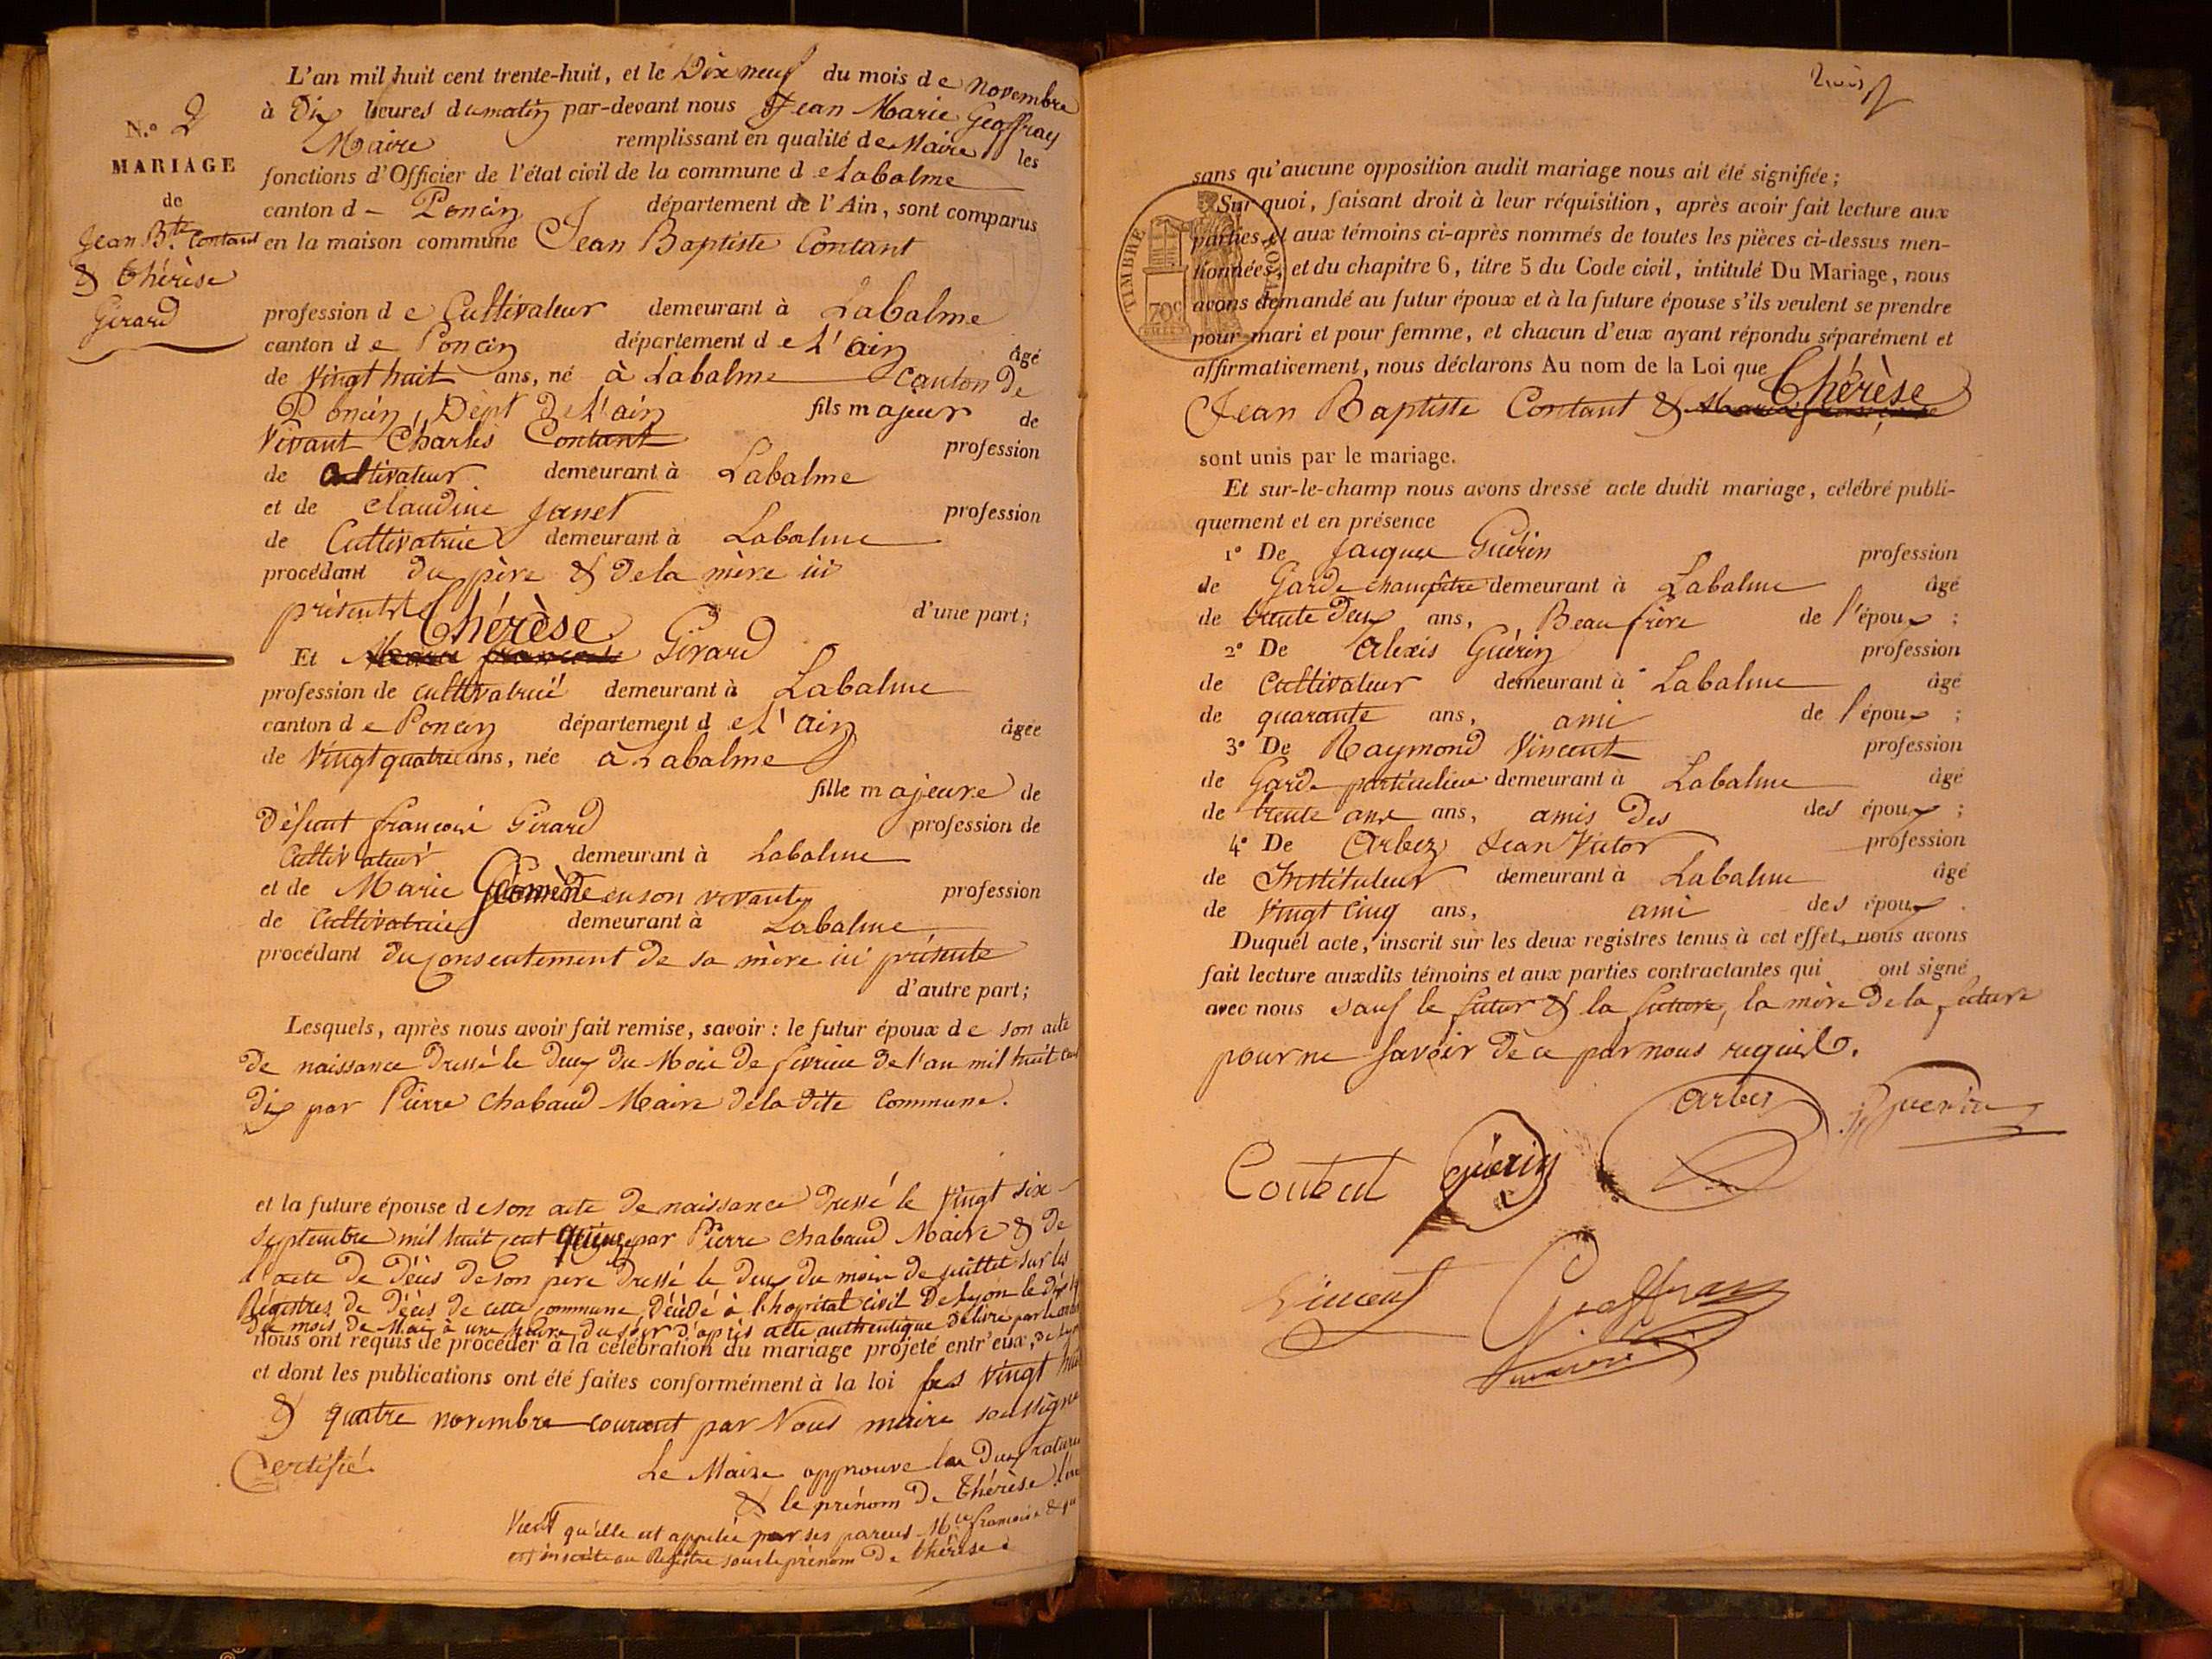 N.º 2
MARIAGE
de
Jean B.te Contant
& Thérèse
Girard
L'an mil huit cent trente-huit, et le Dix neuf du mois de novembre
à Dix heures du matin par-devant nous Jean Marie Geoffray
Maire remplissant en qualité de Maire les
fonctions d'Officier de l'état civil de la commune de Labalme
canton d - Poncin département de l'Ain, sont comparus
en la maison commune Jean Baptiste Contant
profession de Cultivateur demeurant à Labalme
canton de Poncin département de l'ain âgé
de Vingt huit ans, né à Labalme canton De
Poncin, Dépt De l'ain fils majeur de
Vivant Charles Contant profession
de Cultivateur demeurant à Labalme
et de Claudine Janet profession
de Cultivatrice demeurant à Labalme
procédant du père & de la mère ici
présents d'une part;
Thérèse
Et Marie françoise Girard
profession de cultivatrice demeurant à Labalme
canton de Poncin département de l'ain âgée
de Vingt quatre ans, née à Labalme
fille majeure de
Défunt françois Girard profession de
Cultivateur demeurant à Labalme
et de Marie en son vivante profession
de Cultivatrice demeurant à Labalme
procédant du consentement de sa mère ici présente
d'autre part;
Lesquels, après nous avoir fait remise, savoir : le futur époux de son acte
de naissance Dressé le Deux du Mois De février De l'an mil huit cent
dix par Pierre Chabaud Maire de la dite Commune.
et la future épouse de son acte De naissance Dressé le Vingt six
Septembre mil huit cent par Pierre Chabaud Maire & De
l'acte De Décès De son père Dressé le Deux Du mois De juillet sur les
Registres De Décès De cette commune, Décédé à l'hopital civil De Lyon le dix
du mois De Mai à une heure du soir D'après acte authentique Délivré par
nous ont requis de procéder à la célébration du mariage projeté entr'eux,
et dont les publications ont été faites conformément à la loi les Vingt huit
& quatre novembre courant par Nous maire soussigné
Certifié.
Le Maire approuve les Deux ratures
& le prénom De Thérèse
Vient qu'elle est appelée par ses parens M.ie françoise &
est inscrite au Registre sous le prénom De thérèse
trois
sans qu'aucune opposition audit mariage nous ait été signifiée;
Sur quoi, faisant droit à leur réquisition, après avoir fait lecture aux
parties et aux témoins ci-après nommés de toutes les pièces ci-dessus men-
tionnées, et du chapitre 6, titre 5 du Code civil, intitulé Du Mariage, nous
avons demandé au futur époux et à la future épouse s'ils veulent se prendre
pour mari et pour femme, et chacun d'eux ayant répondu séparément et
affirmativement, nous déclarons Au nom de la Loi que
TIMBRE ROYAL
70c
Thérèse
Jean Baptiste Contant & Marie françoise
sont unis par le mariage.
Et sur-le-champ nous avons dressé acte dudit mariage, célébré publi-
quement et en présence
1º De Jacques Guérin profession
de Garde champêtre demeurant à Labalme âgé
de trente Deux ans, Beau frère de l'époux ;
2º De Alexis Guérin profession
de Cultivateur demeurant à Labalme âgé
de quarante ans, ami de l'époux ;
3º De Raymond Vincent profession
de Garde particulier demeurant à Labalme âgé
de trente ans ans, amis Des des époux ;
4º De Arbez Jean Victor profession
de Instituteur demeurant à Labalme âgé
de Vingt Cinq ans, ami des époux .
Duquel acte, inscrit sur les deux registres tenus à cet effet, nous avons
fait lecture auxdits témoins et aux parties contractantes qui ont signé
avec nous sauf le futur & la future, la mère De la future
pour ne savoir De ce par nous requis.
Arbez Guerin
Content Guérin
Vincent Geoffray
maire